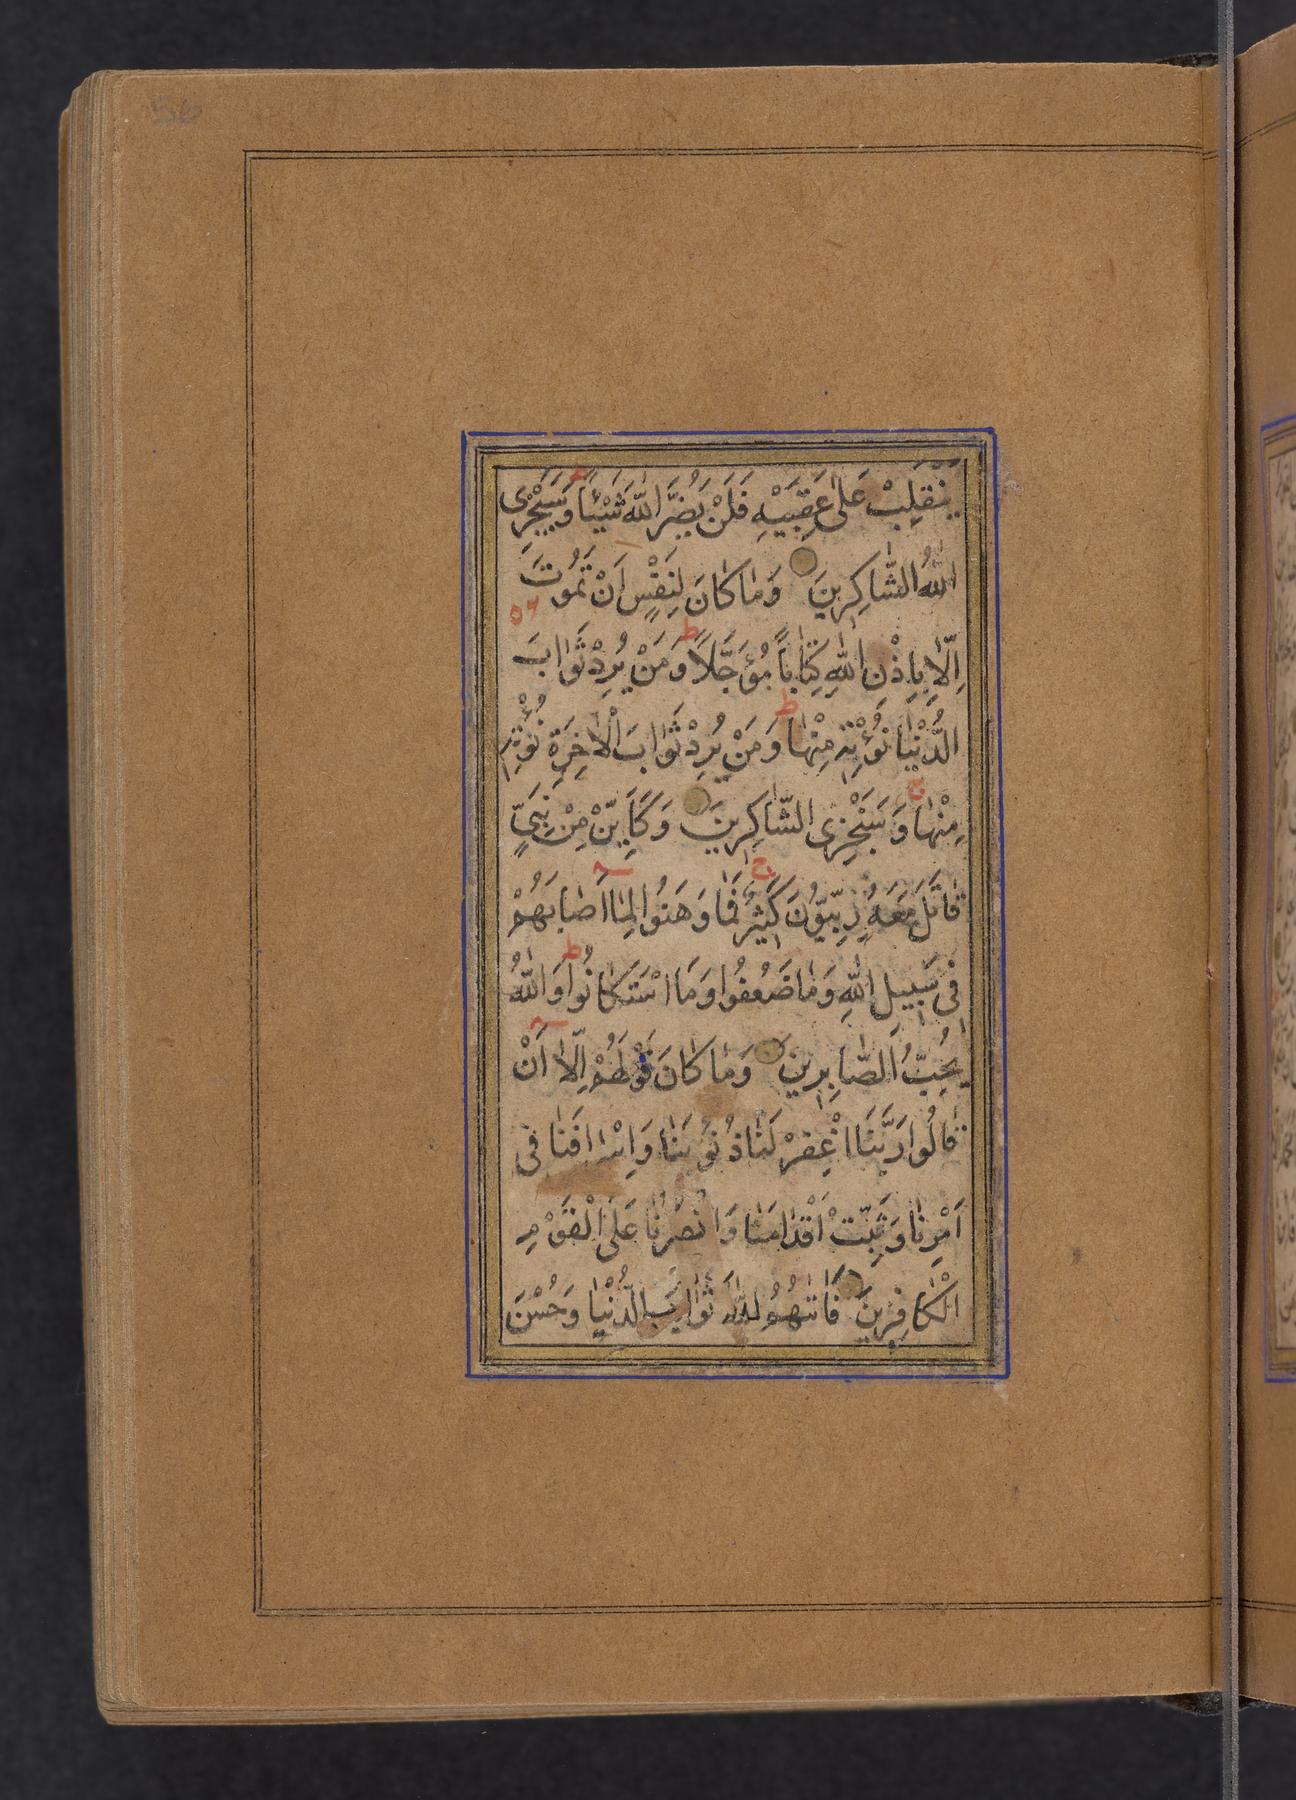 56
يَنْقَلِبْ عَلىٰ عَقِبَيْهِ فَلَنْ يَضُرَّ اللّٰهَ شَيْئاً ط وَسَيَجْزِى
اللّٰهُ الشّٰاكِرِينَ وَمٰا كٰانَ لِنَفْسٍ اَنْ تَمُوتَ
۵۶
اِلّٰا بِاِذْنِ اللّٰهِ كِتٰاباً مُؤَجَّلاً ط وَمَنْ يُرِدْ ثَوٰابَ
الدُّنْيٰا نُؤْتِهِ مِنْهٰا ط وَمَنْ يُرِدْ ثَوٰابَ الْاٰخِرَةِ نُؤْتِهِ
مِنْهٰا ج وَسَنَجْزِى الشّٰاكِرِينَ وَكَاَيِّنْ مِنْ نَبِيٍّ
قٰاتَلَ مَعَهُ رِبِّيُّونَ كَثِيرٌ ج فَمٰا وَهَنُوا لِمٰا اَصٰابَهُمْ
فِى سَبِيلِ اللّٰهِ وَمٰا ضَعُفُوا وَمَا اسْتَكٰانُوا ط وَاللّٰهُ
يُحِبُّ الصّٰابِرِينَ وَمٰا كٰانَ قَوْلَهُمْ اِلّٰا اَنْ
قٰالُوا رَبَّنَا اغْفِرْ لَنٰا ذُنُوبَنٰا وَاِسْرٰافَنٰا فِى
اَمْرِنٰا وَثَبِّتْ اَقْدٰامَنٰا وَانْصُرْنٰا عَلَى الْقَوْمِ
الْكٰافِرِينَ فَاٰتٰهُمُ اللّٰهُ ثَوٰابَ الدُّنْيٰا وَحُسْنَ